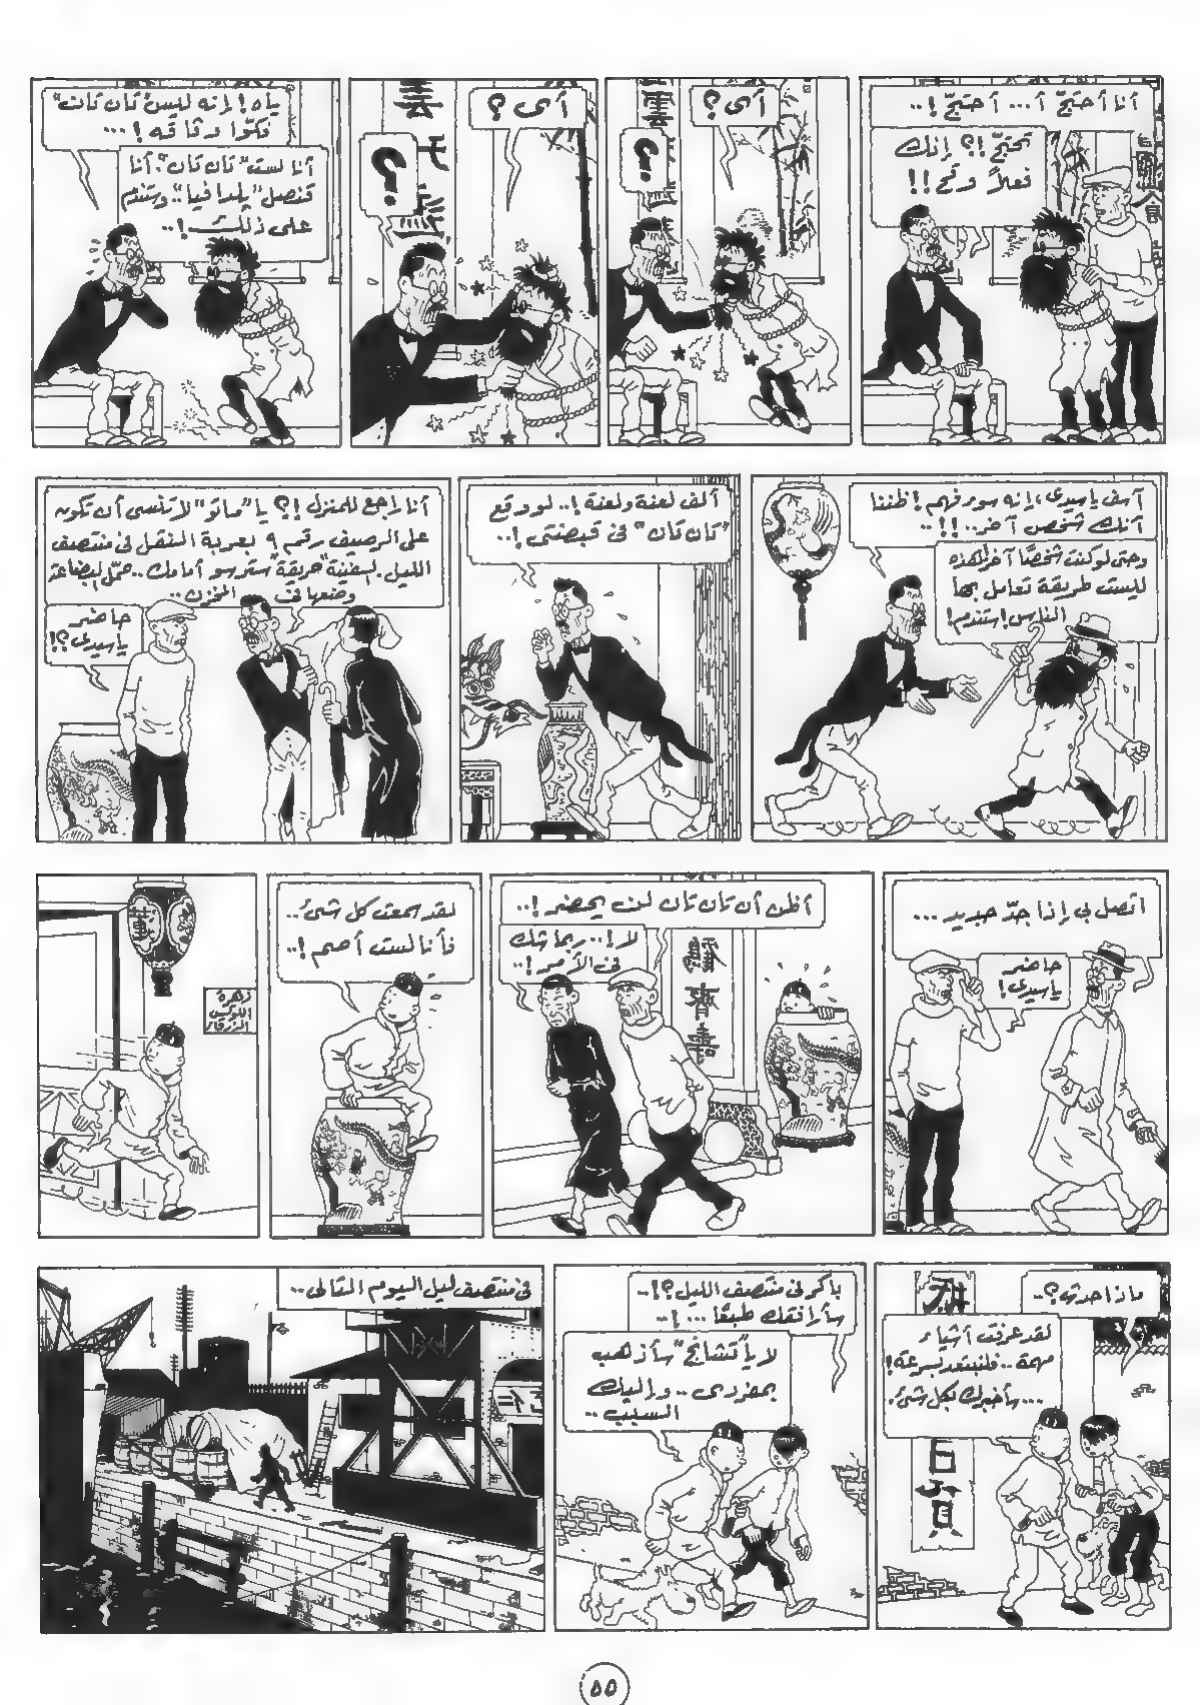 أنا أحتجّ أ... أحتجّ!..
تحتجّ!؟ إنك
فعلاً وقح!!
أى؟
؟..
أى؟
؟..
ياه! إنه ليس "تان تان"
فكّوا وثاقه!...
أنا لست "تان تان"، أنا
قنصل "يلدافيا".. وستندم
على ذلك!..
آسف ياسيدى، إنه سوء فهم! ظننا
أنك شخص آخر..!!..
وحتى لوكنت شخصًا آخر! هذه
ليست طريقة تعامل بها
الناس! ستندم!
ألف لعنة ولعنة!.. لو وقع
"تان تان" فى قبضتى!..
أنا راجع للمنزل!؟ يا "ماتو" لا تنسى أن تكون
على الرصيف رقم ٩ بعربة النقل فى منتصف
الليل. السفينة "حريقة" سترسو أمامك.. حمّل البضاعة
وضعها فى المخزن..
حاضر
ياسيدى؟!
اتصل بى إذا جدّ جديد...
حاضر
ياسيدى!
أظن أن تان تان لن يحضر!..
لا!... ربما شك
فى الأمر!..
لقد سمعت كل شئ..
فأنا لست أصم!..
زهرة
اللوتس
الزرقاء
ماذا حدث؟..
لقد عرفت أشياء
مهمة.. فلنبتعد بسرعة!
.... سأخبرك بكل شئ.
باكر فى منتصف الليل؟!..
سأرافقك طبعًا...!..
لا يا "تشانج" سأذهب
بمفردى.. وإليك
السبب..
فى منتصف ليل اليوم التالى..
٥٥